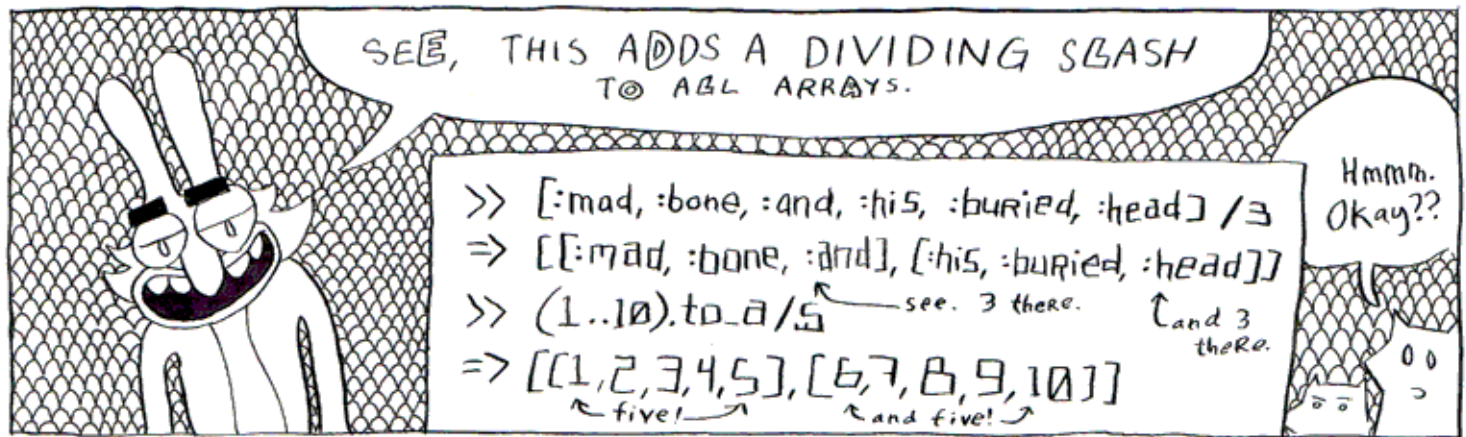 SEE, THIS ADDS A DIVIDING SLASH
TO ALL ARRAYS.
>> [:mad, :bone, :and, :his, :buried, :head] /3
=> [[:mad, :bone, :and], [:his, :buried, :head]]
see. 3 there.
and 3
there.
>> (1..10).to_a/5
=> [[1,2,3,4,5],[6,7,8,9,10]]
five!
and five!
Hmmm.
Okay??